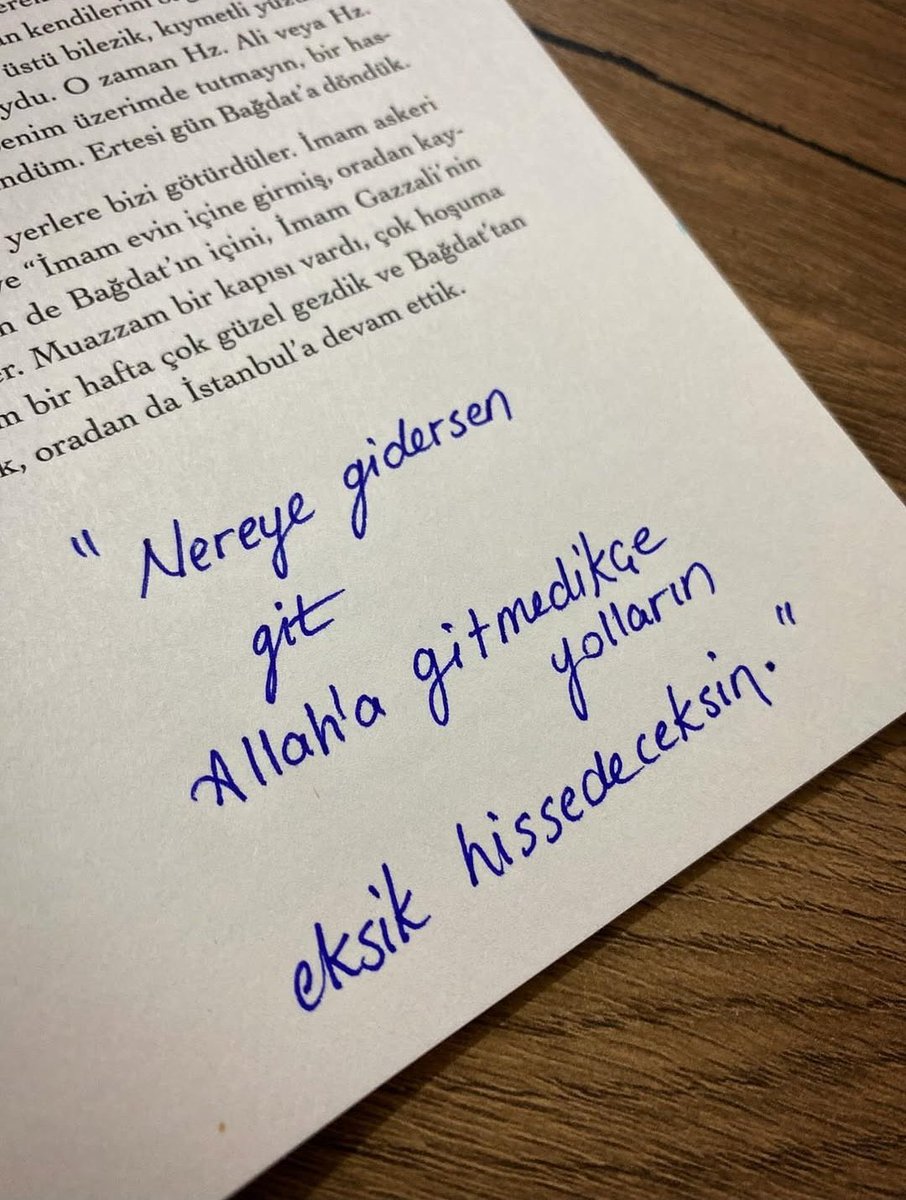 an kendilerini
üstü bilezik, kıymetli
ydu. O zaman Hz. Ali veya Hz.
enim üzerimde tutmayın, bir has-
ndüm. Ertesi gün Bağdat'a döndük.
yerlere bizi götürdüler. İmam askeri
ve “İmam evin içine girmiş, oradan kay-
n de Bağdat'ın içini, İmam Gazzali'nin
er. Muazzam bir kapısı vardı, çok hoşuma
m bir hafta çok güzel gezdik ve Bağdat'tan
k, oradan da İstanbul'a devam ettik.
" Nereye gidersen
git
Allah'a gitmedikçe
yolların
eksik hissedeceksin."